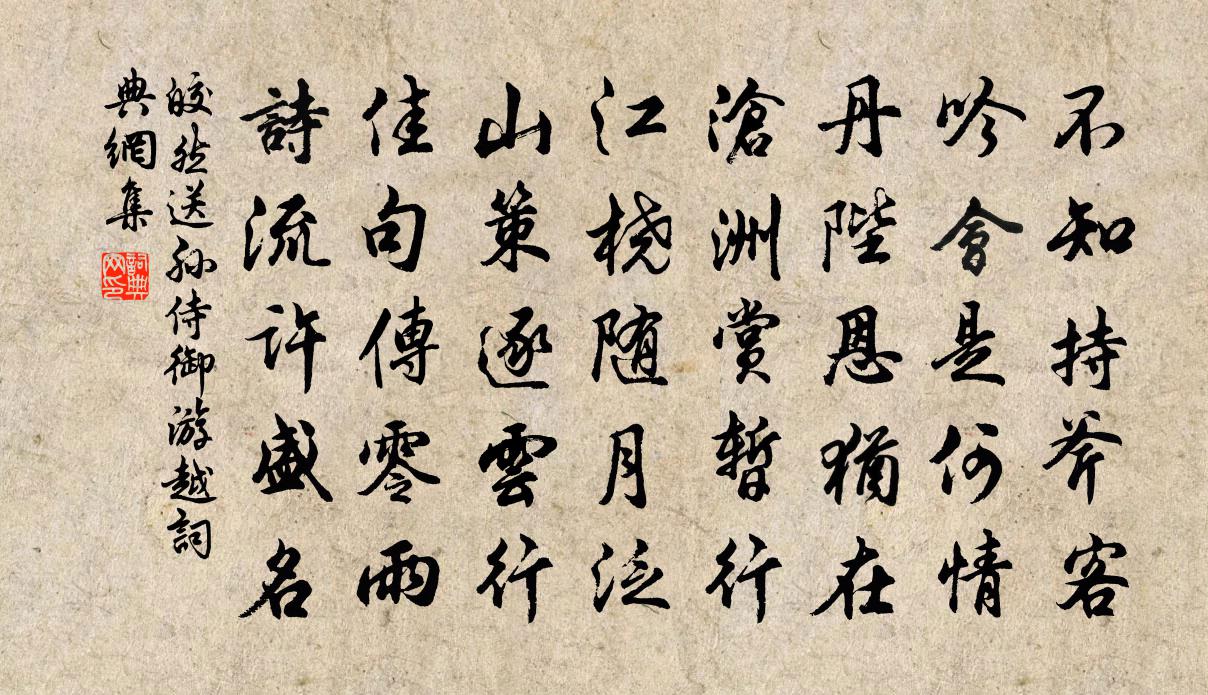 不知持斧客
吟會是何情
丹陛恩猶在
滄洲賞暫行
江橈隨月泛
山策逐雲行
佳句傳零雨
詩流許盛名
皎然送孙侍御游越詞
典網集
詞典
网印